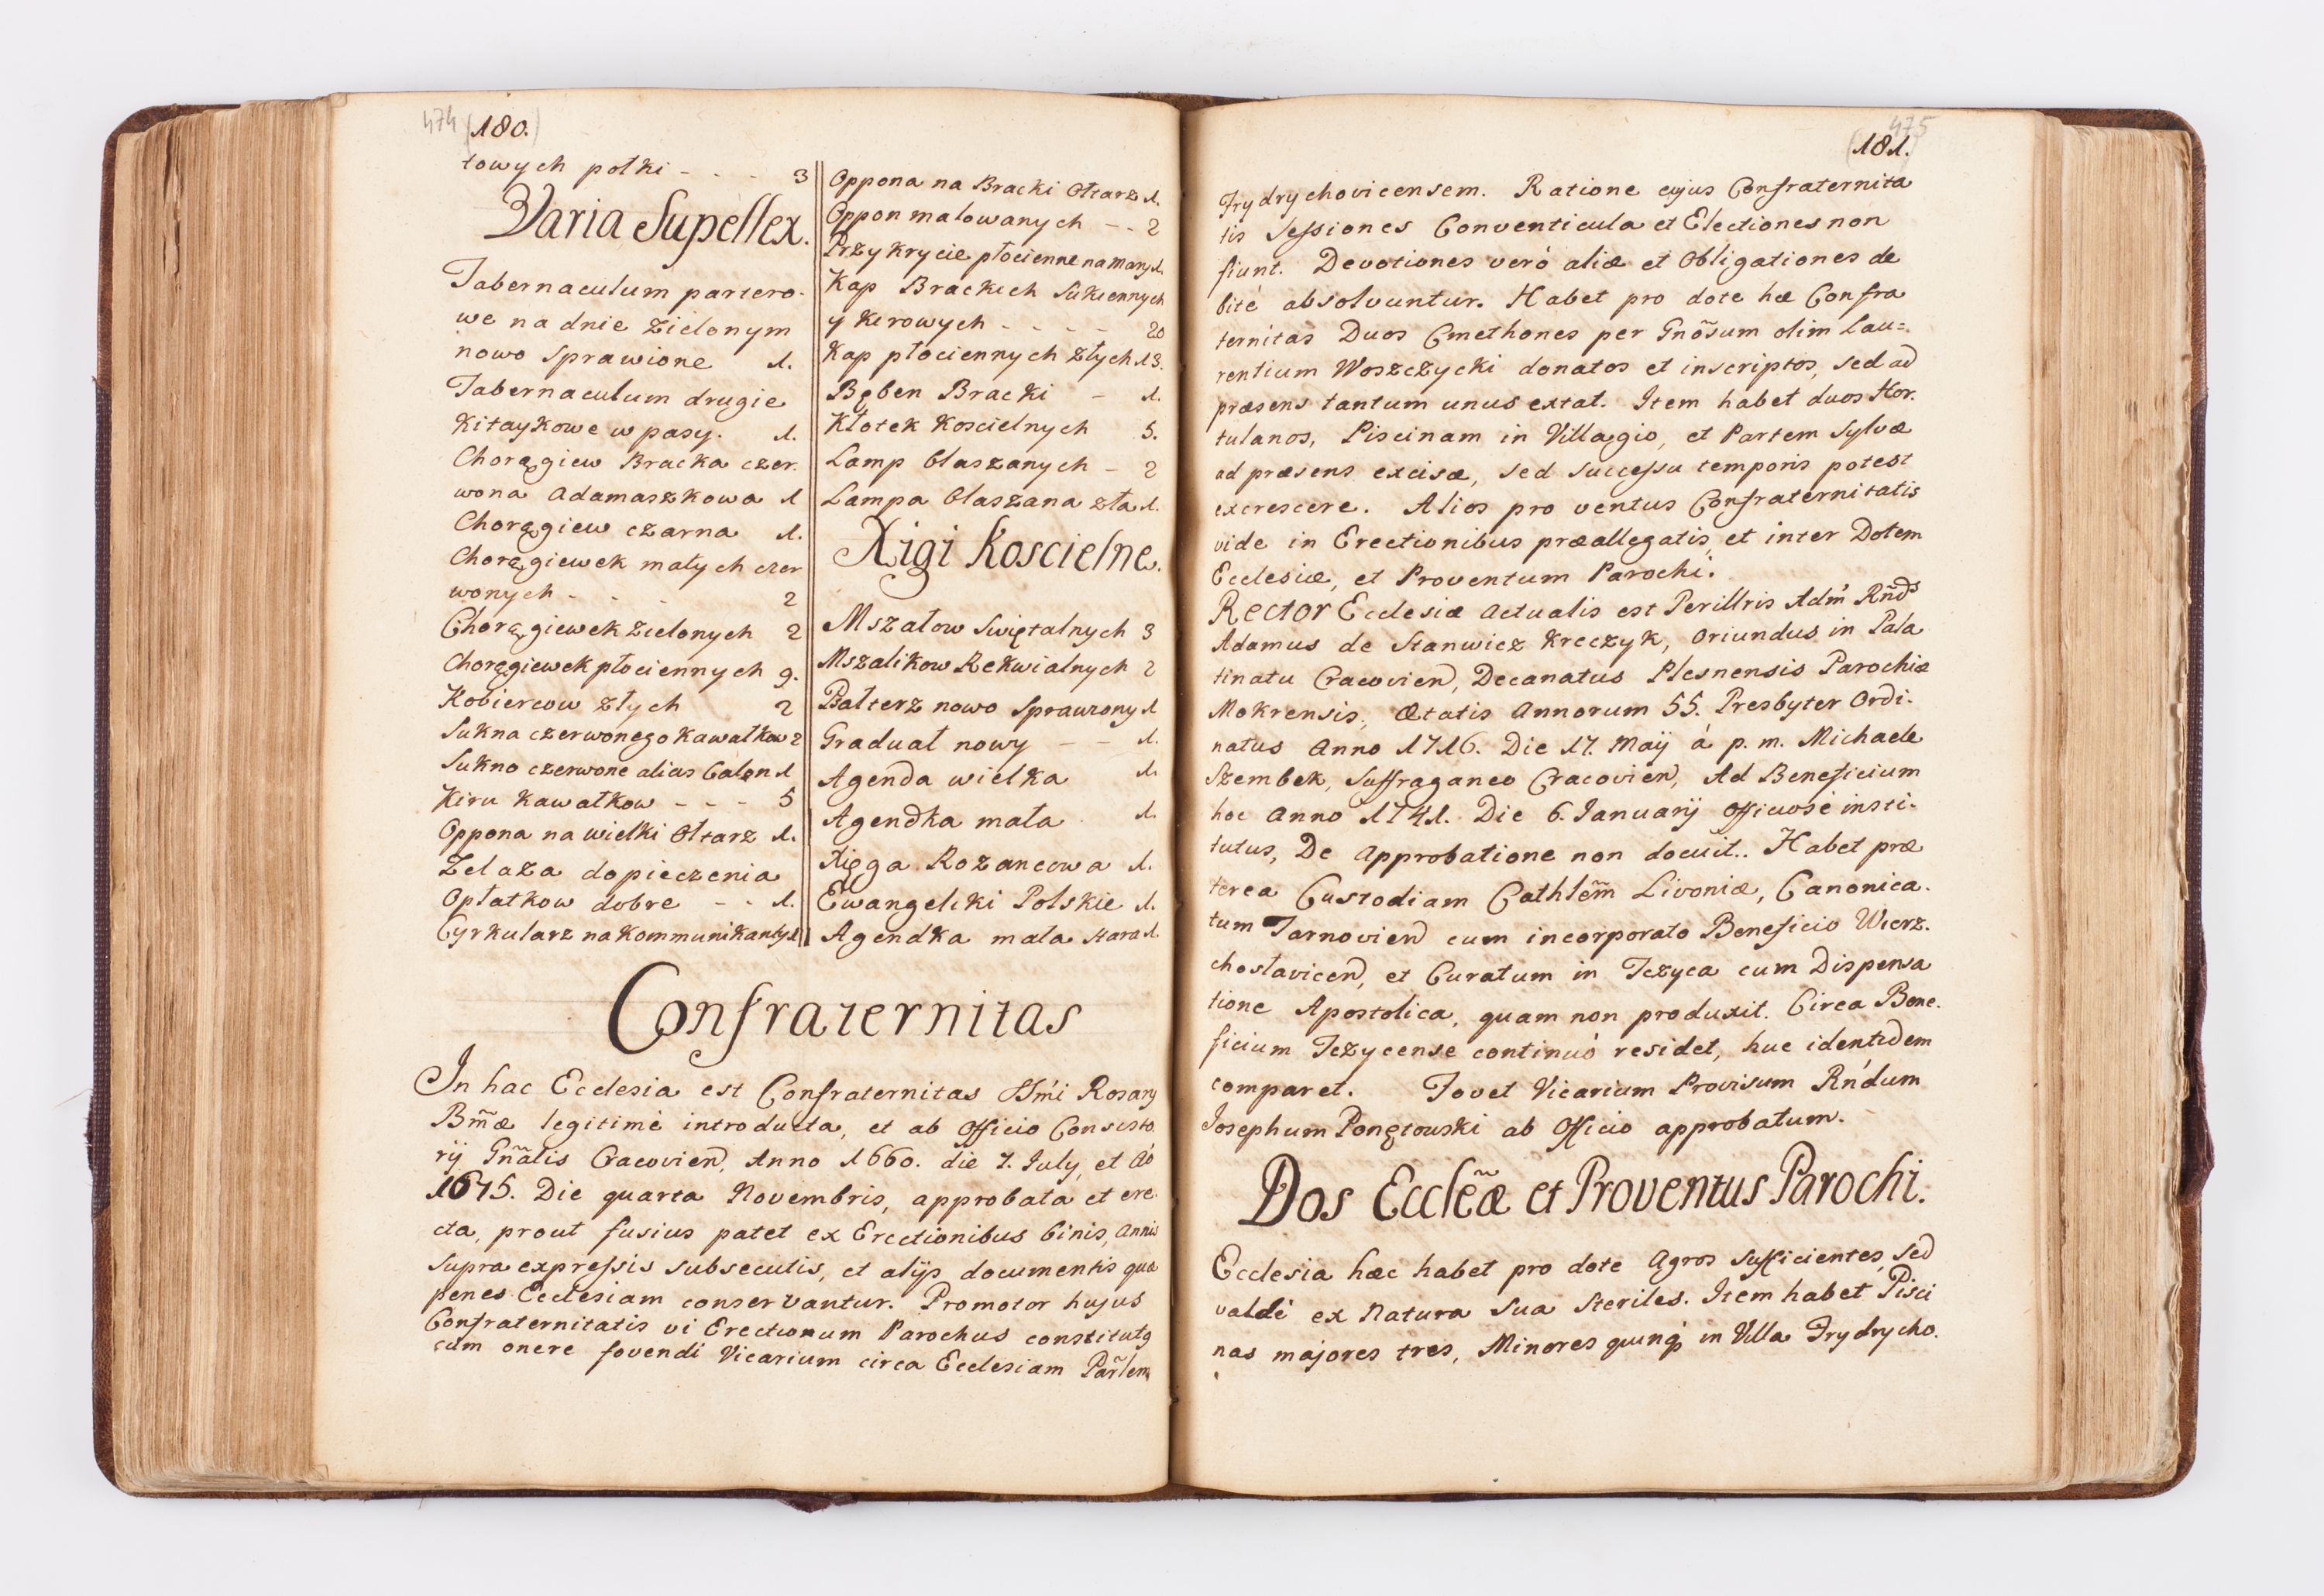 474 (180.)
towych potki - - - 3
Varia Supellex.
Tabernaculum partero-
we na dnie zielonym
nowo sprawione 1.
Tabernaculum drugie
Kitaykowe w pasy. 1.
Chorągiew Bracka czer.
wona Adamaszkowa 1
Chorągiew czarna 1.
Chorągiewek małych czer
wonych - - - 2
Chorągiewek zielonych 2
Chorągiewek płociennych 9.
Kobiercow złych 2
Sukna czerwonego Kawałkow 2
Sukno czerwone alias Galon 1
Kiru Kawałkow - - - 5
Oppona na wielki Ołtarz 1.
Zelaza do pieczenia
Opłatkow dobre - - 1.
Cyrkularz na Kommunikanty 1
Oppona na Bracki Ołtarz 1.
Oppon malowanych - - 2
Przykrycie płocienne na mary 1.
Kap Brackich Sukiennych
y Kirowych - - - - 20
Kap płociennych złych 13.
Bęben Bracki - 1.
Kłotek Koscielnych 5.
Lamp blaszanych - 2
Lampa blaszana zła 1.
Xigi Koscielne.
Mszałow Swiętalnych 3
Mszalikow Rekwialnych 2
Psałterz nowo sprawiony 1
Graduał nowy - - 1.
Agenda wielka 1.
Agendka mała 1.
Xięga Rozancowa 1.
Ewangeliki Polskie 1.
Agendka mała stara 1.
Confraternitas
In hac Ecclesia est Confraternitas SSm̃i Rosarÿ
Bm̃æ legitimè introducta, et ab Officio Consisto
rij Gñalis Cracovien, Anno 1660. die 7. July, et Aõ
1675. Die quarta Novembris, approbata et ere
cta, prout fusius patet ex Erectionibus binis, Annis
supra expressis subsecutis, et alijs documentis quæ
penes Ecclesiam conservantur. Promotor hujus
Confraternitatis vi Erectionum Parochus constitutq
cum onere fovendi Vicarium circa Ecclesiam Parl̃em
475
(181.)
Frydrychovicensem. Ratione cujus Confraternita
tis Sessiones Conventicula et Electiones non
fiunt. Devotiones verò aliæ et Obligationes de
bitè absolvuntur. Habet pro dote hæ Confra
ternitas Duos Cmethones per Gnõsum olim Lau=
rentium Woszczycki donatos et inscriptos, sed ad
præsens tantum unus extat. Item habet duos Hor.
tulanos, Piscinam in Villagio, et Partem Sylvæ
ad præsens excisæ, sed successu temporis potest
excrescere. Alios pro ventus Confraternitatis
vide in Erectionibus præallegatis, et inter Dotem
Ecclesiæ, et Proventum Parochi.
Rector Ecclesiæ actualis est Perillris Adm̃ Rñds
Adamus de Stanwicz Kreczyk, Oriundus in Pala
tinatu Cracovien, Decanatus Plesnensis Parochiæ
Mokrensis, Ætatis Annorum 55. Presbyter Ordi.
natus Anno 1716. Die 17. Maÿ á p. m. Michaele
Szembek, Suffraganeo Cracovien, Ad Beneficium
hoc Anno 1741. Die 6. Januarÿ Officiosè insti.
tutus, De Approbatione non docuit.. Habet præ
terea Custodiam Cathlem̃ Livoniæ, Canonica.
tum Tarnovien cum incorporato Beneficio Wierz.
chosławicen, et Curatum in Tczyca cum Dispensa
tione Apostolica, quam non produxit. Circa Bene.
ficium Tczycense continuò residet, huc identidem
comparet. Fovet Vicarium Provisum Rñdum
Josephum Pongtowski ab Officio approbatum.
Dos Ecclẽæ et Proventus Parochi.
Ecclesia hæc habet pro dote Agros Sufficientes, sed
valdè ex Natura Sua Steriles. Item habet Pisci
nas majores tres, Minores quinq́ in Villa Frydrycho.